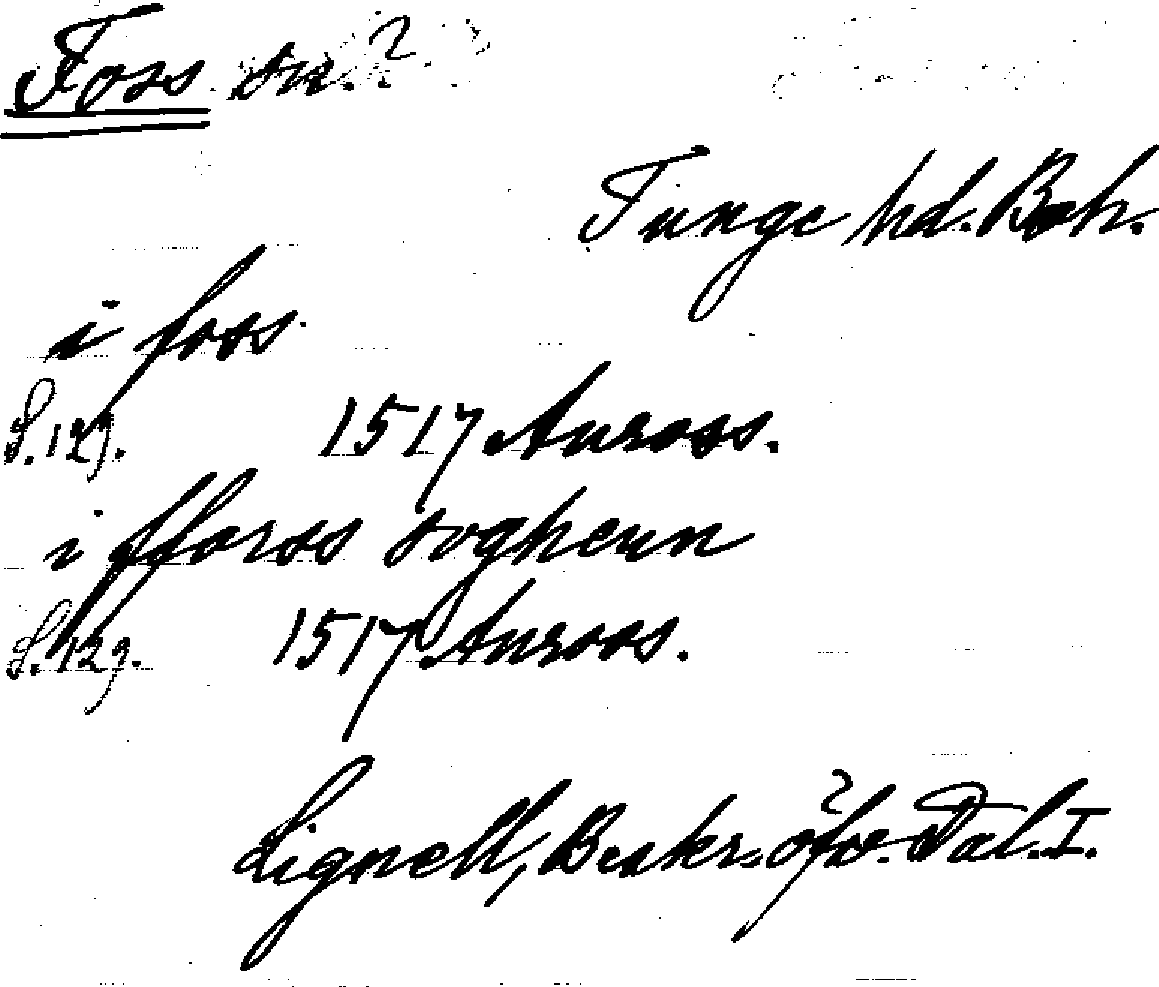 Foss sn.?
Tunge hd. Boh.
i foss
S. 129. 1517 Avross.
i fforss soghenn
S. 129. 1517 Avross.
Lignell, Beskr. öfv. Dal. I.